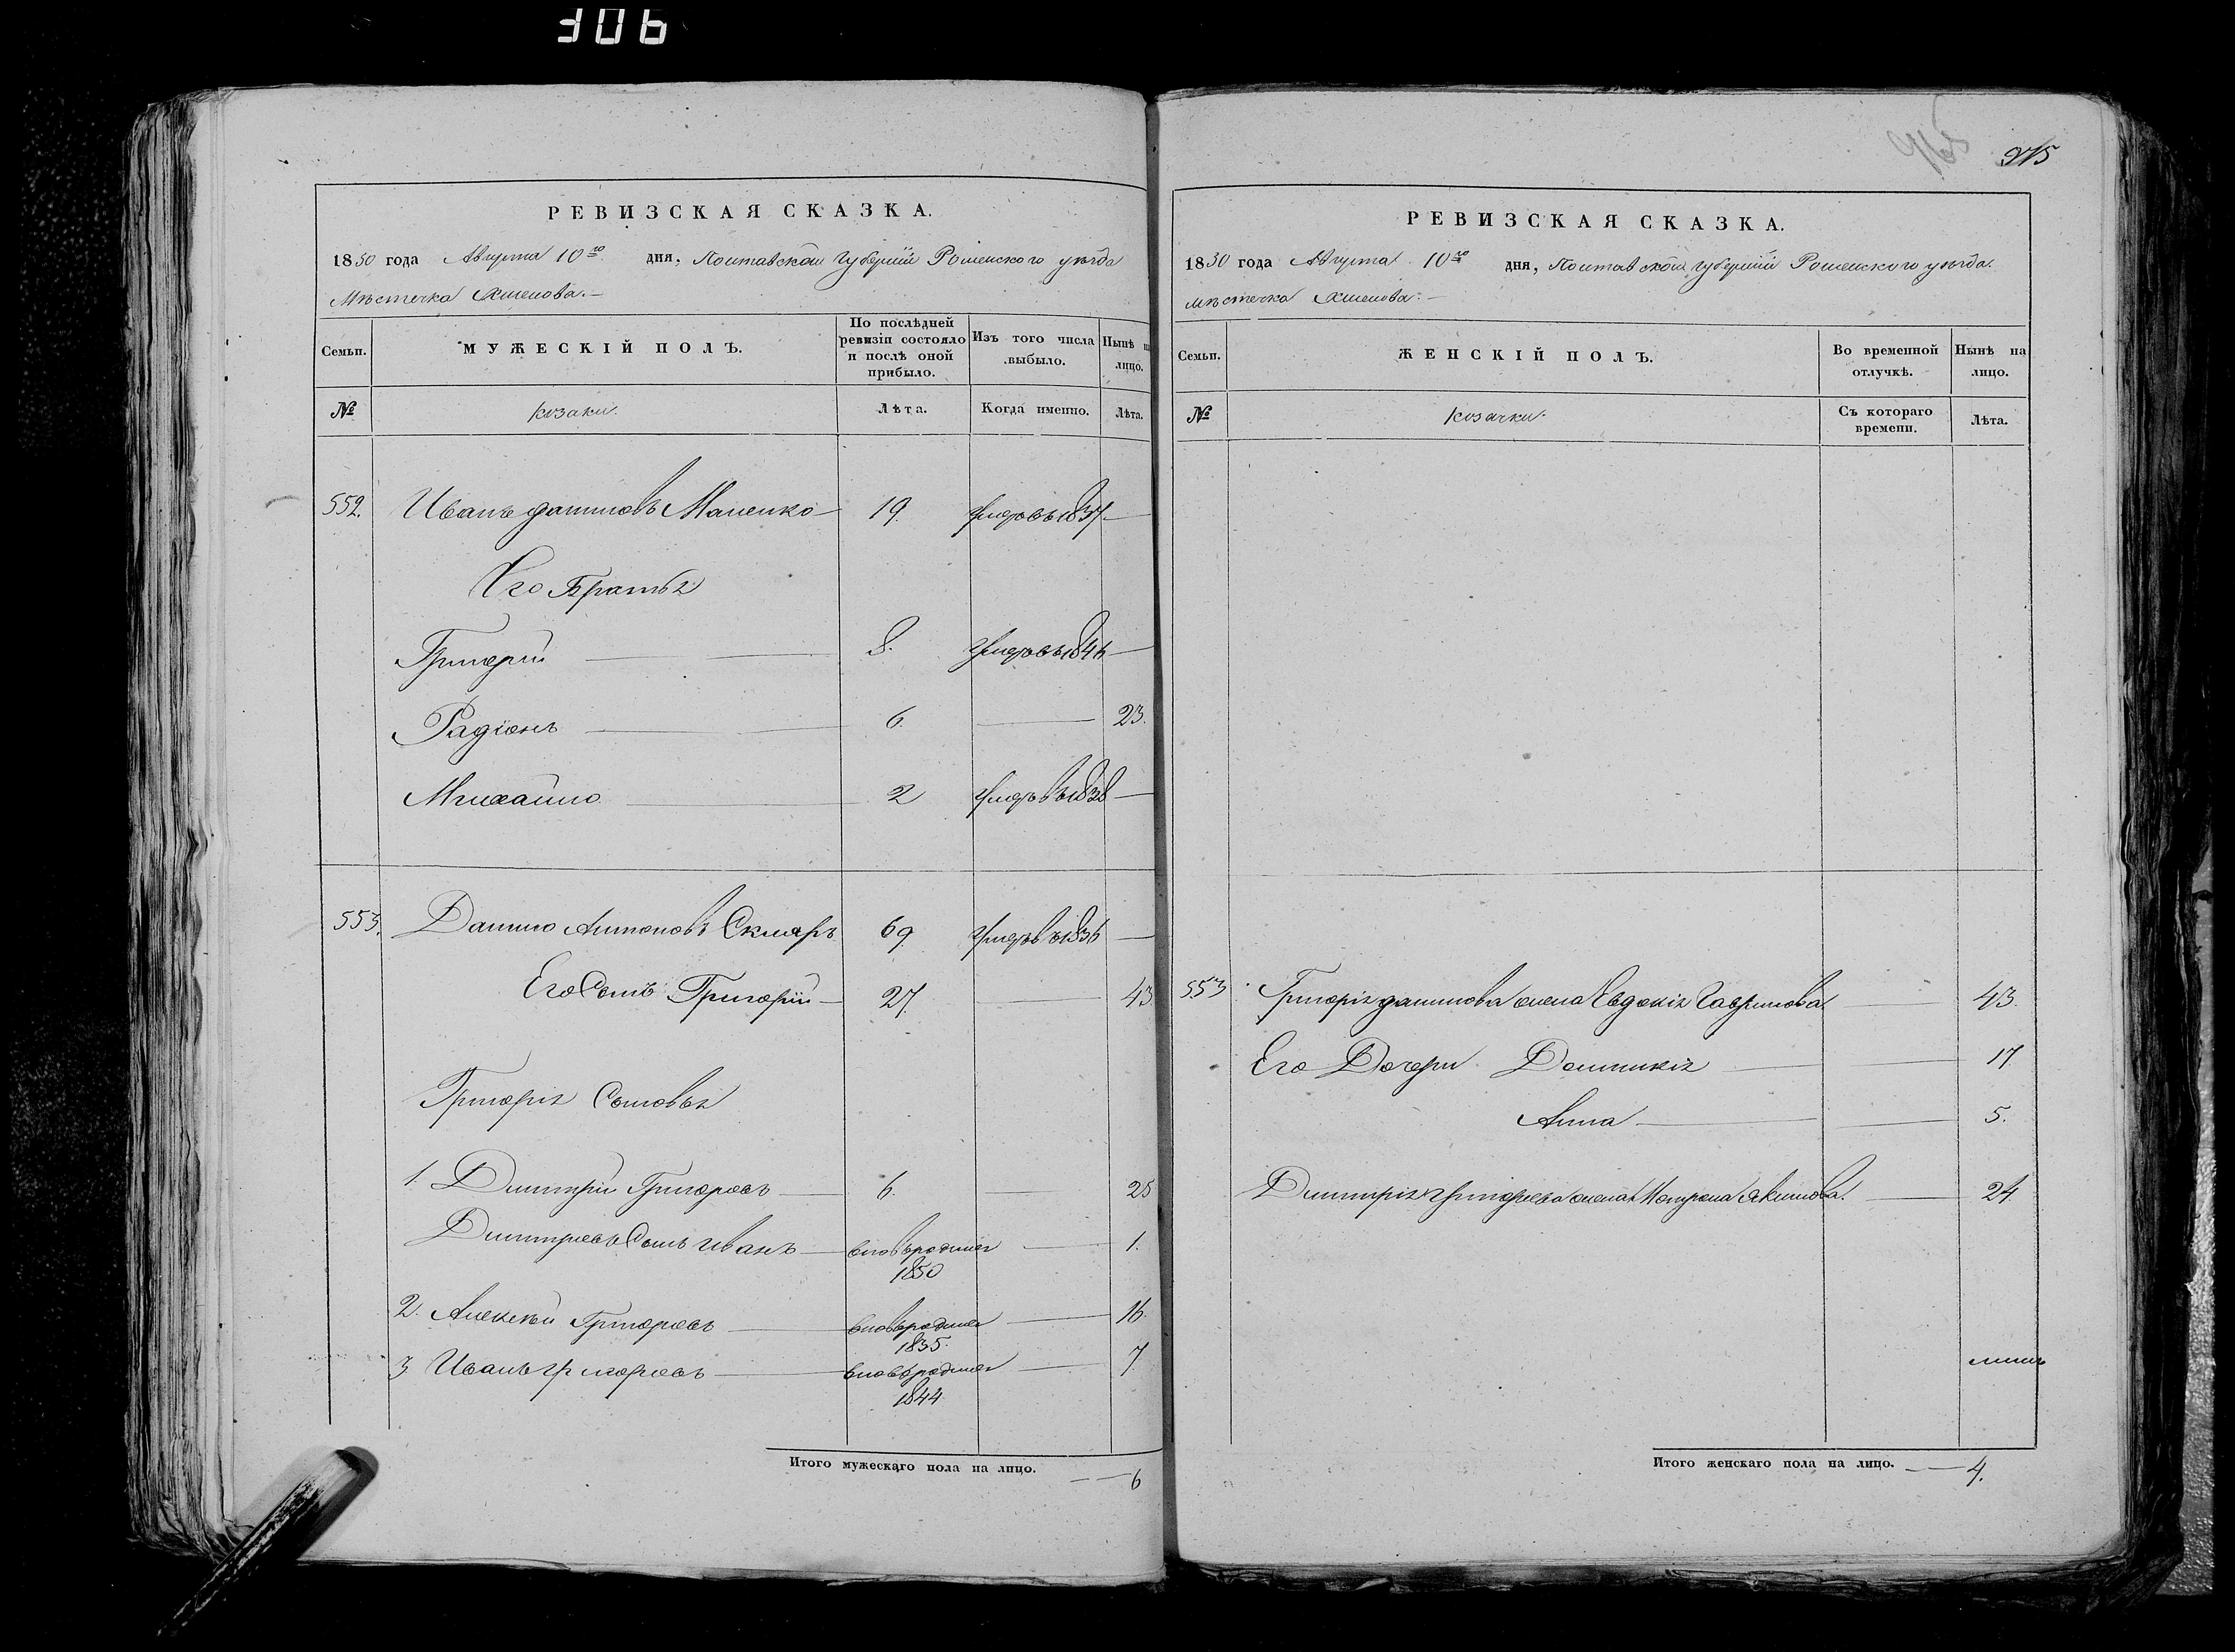 306
РЕВИЗСКАЯ СКАЗКА.
1850 года Августа 10го дня, Полтавской губерніи Роменского уѣзда
Мѣстечка Хмелова.
Семьи.
МУЖЕСКІЙ ПОЛЪ.
По послѣдней ревизіи состояло и послѣ оной прибыло.
Изъ того числа выбыло.
Нынѣ на лицо.
№
козаки.
Лѣта.
Когда именно.
Лѣта.
552. Иванъ Даниловъ Маленко 19. умеръ въ 1837.
Его Братья
Григорій 8. умеръ въ 1846
Радіонъ 6. 23.
Михайло 2 умеръ въ 1838
553. Данило Антоновъ Скляръ 69 умеръ въ 1836
Его Сынъ Григорій 27. 43
Григорія Сыновья
1. Дмитрій Григорьевъ 6. 25
Дмитріевъ Сынъ Иванъ вновьрожден 1.
1850
2. Алексѣй Григорьевъ вновьрожден 16.
1835.
3. Иванъ Григорьевъ вновьрожден 7.
1844
Итого мужескаго пола на лицо. 6
965
275
РЕВИЗСКАЯ СКАЗКА.
1850 года Августа 10го дня, Полтавской губерніи Роменского уѣзда.
мѣстечка Хмелова.
Семьи.
ЖЕНСКІЙ ПОЛЪ.
Во временной отлучкѣ.
Нынѣ на лицо.
№
козачки.
Съ котораго времени.
Лѣта.
553. Григорія Данилова жена Евдокія Гаврилова 43.
Его Дочери Домникія 17
Анна 5.
Дмитрія Григорьева жена Мотрона Якимова. 24
Итого женскаго пола на лицо. 4.